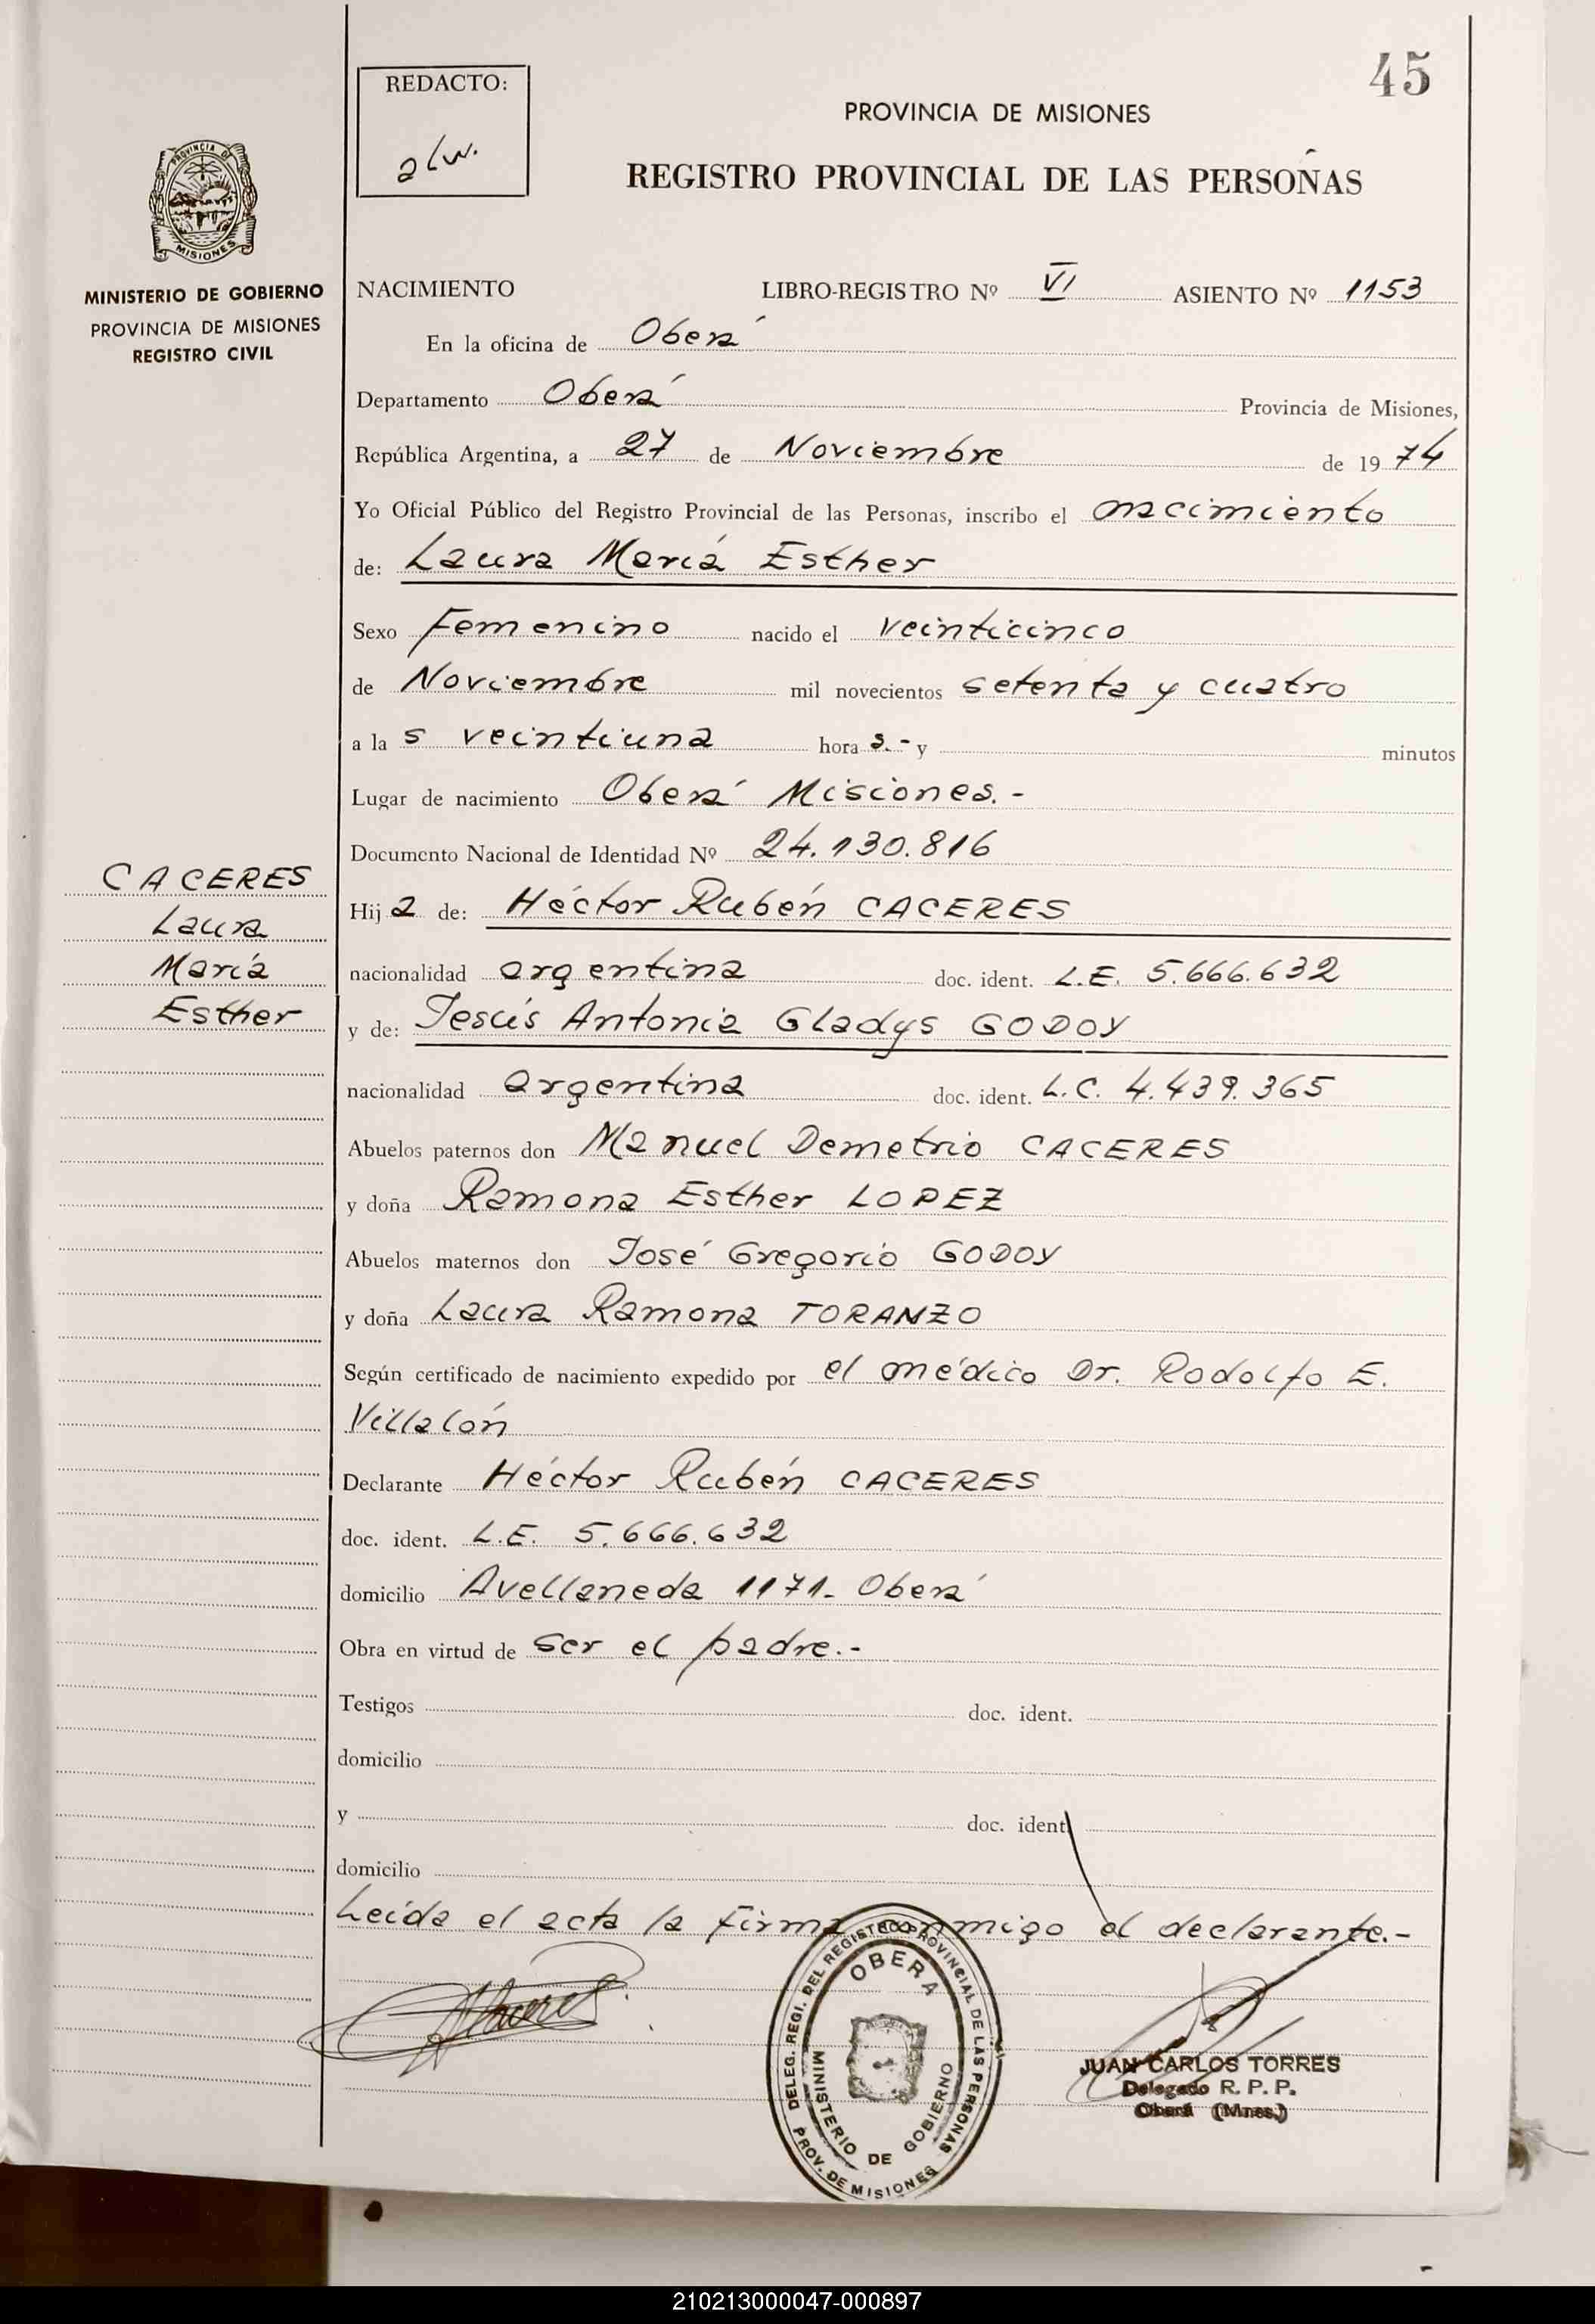 45
REDACTO:
alw.
PROVINCIA DE MISIONES
REGISTRO PROVINCIAL DE LAS PERSOÑAS
PROVINCIA DE
MISIONES
MINISTERIO DE GOBIERNO
PROVINCIA DE MISIONES
REGISTRO CIVIL
NACIMIENTO LIBRO-REGISTRO Nº VI ASIENTO Nº 1153
En la oficina de Oberá
Departamento Oberá Provincia de Misiones,
República Argentina, a 27 de Noviembre de 1974
Yo Oficial Público del Registro Provincial de las Personas, inscribo el nacimiento
de: Laura María Esther
Sexo Femenino nacido el veinticinco
de Noviembre mil novecientos setenta y cuatro
a las veintiuna horas.- y minutos
Lugar de nacimiento Oberá Misiones.-
Documento Nacional de Identidad Nº 24.130.816
CACERES
Laura
María
Esther
Hija de: Héctor Rubén CACERES
nacionalidad argentina doc. ident. L.E. 5.666.632
y de: Jesús Antonia Gladys GODOY
nacionalidad argentina doc. ident. L.C. 4.439.365
Abuelos paternos don Manuel Demetrio CACERES
y doña Ramona Esther LOPEZ
Abuelos maternos don José Gregorio GODOY
y doña Laura Ramona TORANZO
Según certificado de nacimiento expedido por el médico Dr. Rodolfo E.
Villalón
Declarante Héctor Rubén CACERES
doc. ident. L.E. 5.666.632
domicilio Avellaneda 1171- Oberá
Obra en virtud de ser el padre.-
Testigos doc. ident.
domicilio
y doc. ident
domicilio
Leída el acta la firma conmigo el declarante.-
DELEG. REGI. DEL REGISTRO PROVINCIAL DE LAS PERSONAS
OBERA
MINISTERIO DE GOBIERNO
PROV. DE MISIONES
JUAN CARLOS TORRES
Delegado R. P. P.
Oberá (Mnes.)
210213000047-000897